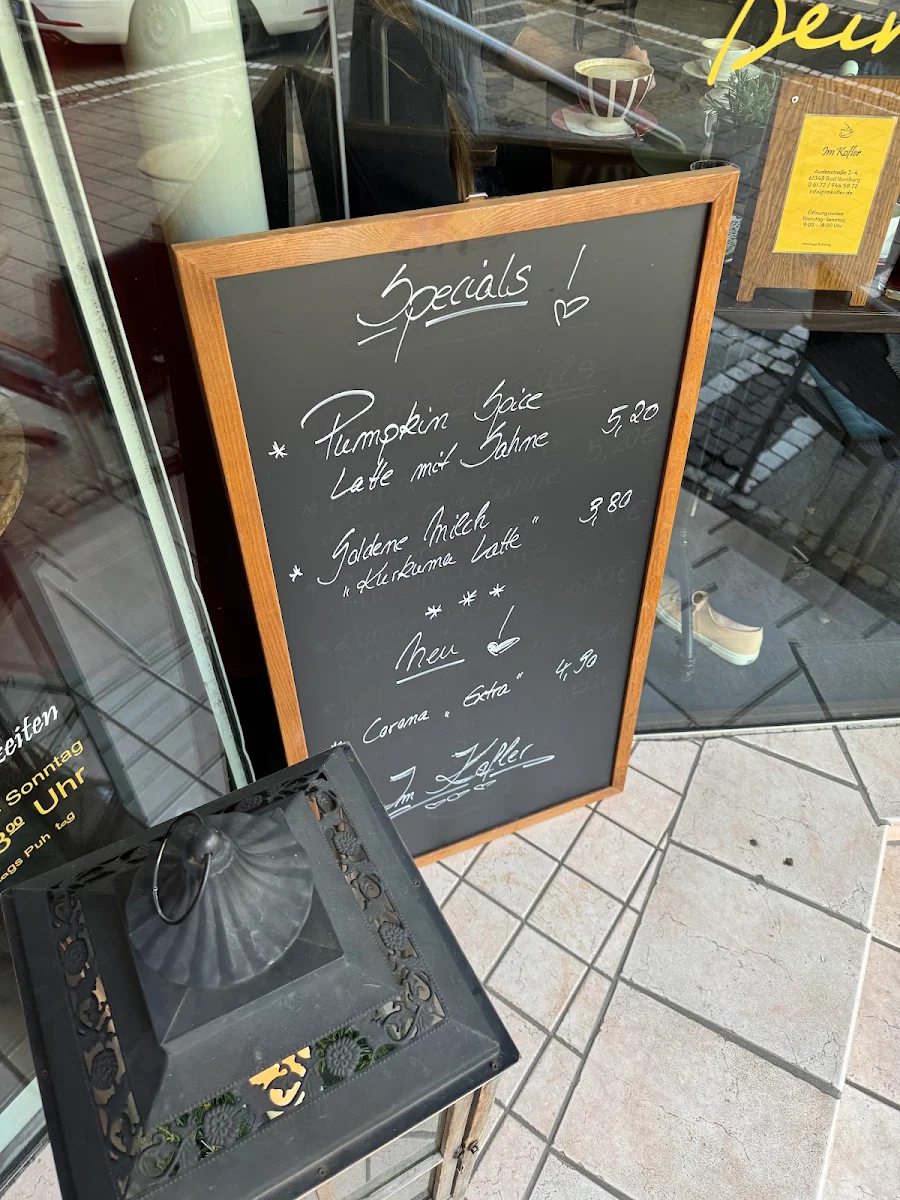 Dein
Im Kofler
Audenstraße 2-4
61348 Bad Homburg
0 61 72 / 944 58 72
info@imkofler.de
Öffnungszeiten
Dienstag-Sonntag
9:00 - 18:00 Uhr
Specials !
* Pumpkin Spice 5,20
Latte mit Sahne
* Goldene Milch 3,80
"Kurkuma Latte"
* * *
Neu !
* Corona "Extra" 4,90
Im Kofler
zeiten
Sonntag
8⁰⁰ Uhr